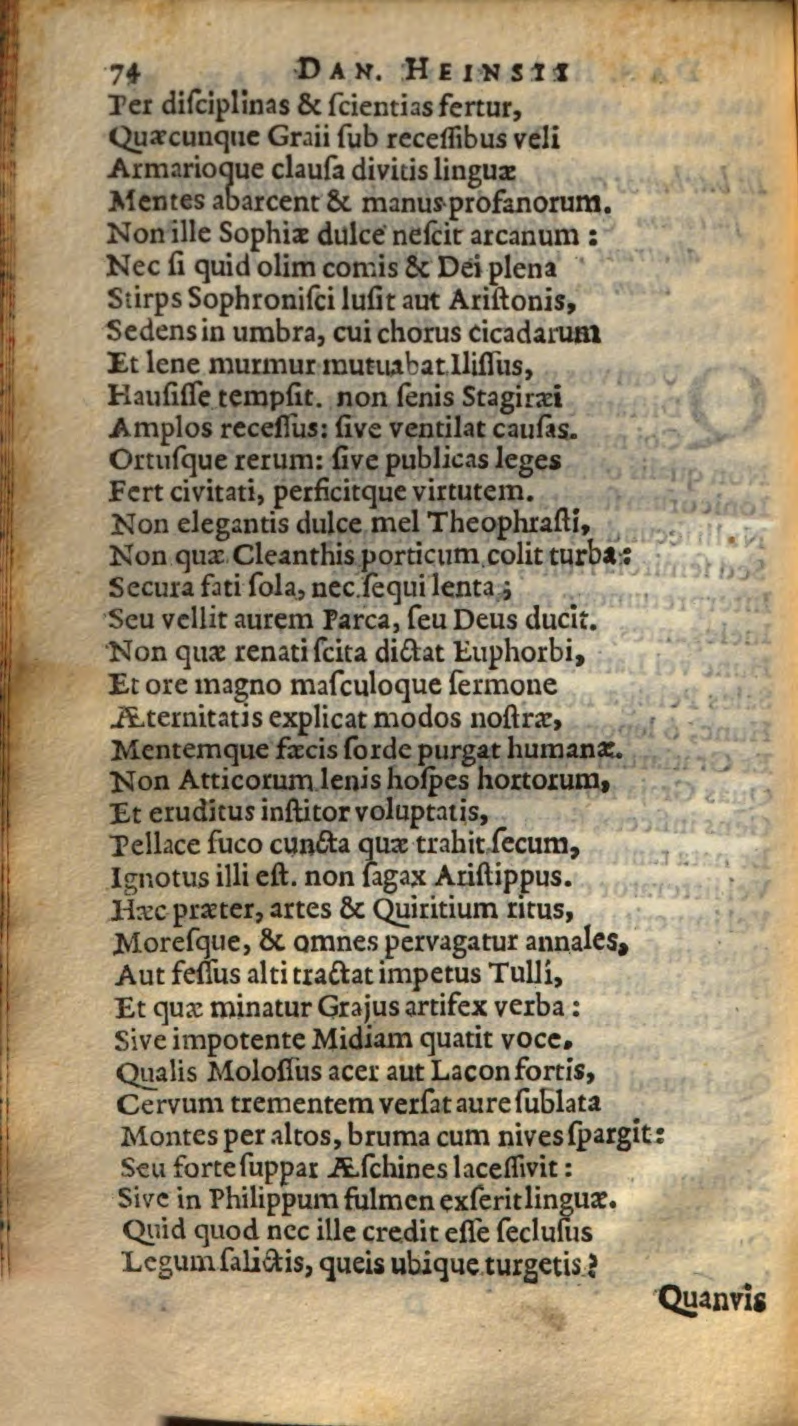 74 DAN. HEINSII
Per diſciplinas & ſcientias fertur,
Quæcunque Graii ſub receſſibus veli
Armarioque clauſa divitis linguæ
Mentes abarcent & manus profanorum.
Non ille Sophiæ dulce neſcit arcanum :
Nec ſi quid olim comis & Dei plena
Stirps Sophroniſci luſit aut Ariſtonis,
Sedens in umbra, cui chorus cicadarum
Et lene murmur mutuabat Iliſſus,
Hauſiſſe tempſit. non ſenis Stagiræi
Amplos receſſus: ſive ventilat cauſas.
Ortuſque rerum: ſive publicas leges
Fert civitati, perficitque virtutem.
Non elegantis dulce mel Theophraſti,
Non quæ Cleanthis porticum colit turba:
Secura fati ſola, nec ſequi lenta ;
Seu vellit aurem Parca, ſeu Deus ducit.
Non quæ renati ſcita dictat Euphorbi,
Et ore magno maſculoque ſermone
Æternitatis explicat modos noſtræ,
Mentemque fæcis ſorde purgat humanæ.
Non Atticorum lenis hoſpes hortorum,
Et eruditus inſtitor voluptatis,
Pellace fuco cuncta quæ trahit ſecum,
Ignotus illi eſt. non ſagax Ariſtippus.
Hæc præter, artes & Quiritium ritus,
Moreſque, & omnes pervagatur annales,
Aut feſſus alti tractat impetus Tulli,
Et quæ minatur Grajus artifex verba :
Sive impotente Midiam quatit voce.
Qualis Moloſſus acer aut Lacon fortis,
Cervum trementem verſat aure ſublata
Montes per altos, bruma cum nives ſpargit:
Seu forte ſuppar Æſchines laceſſivit :
Sive in Philippum fulmen exſerit linguæ.
Quid quod nec ille credit eſſe ſecluſus
Legum ſalictis, queis ubique turgetis ?
Quanvis